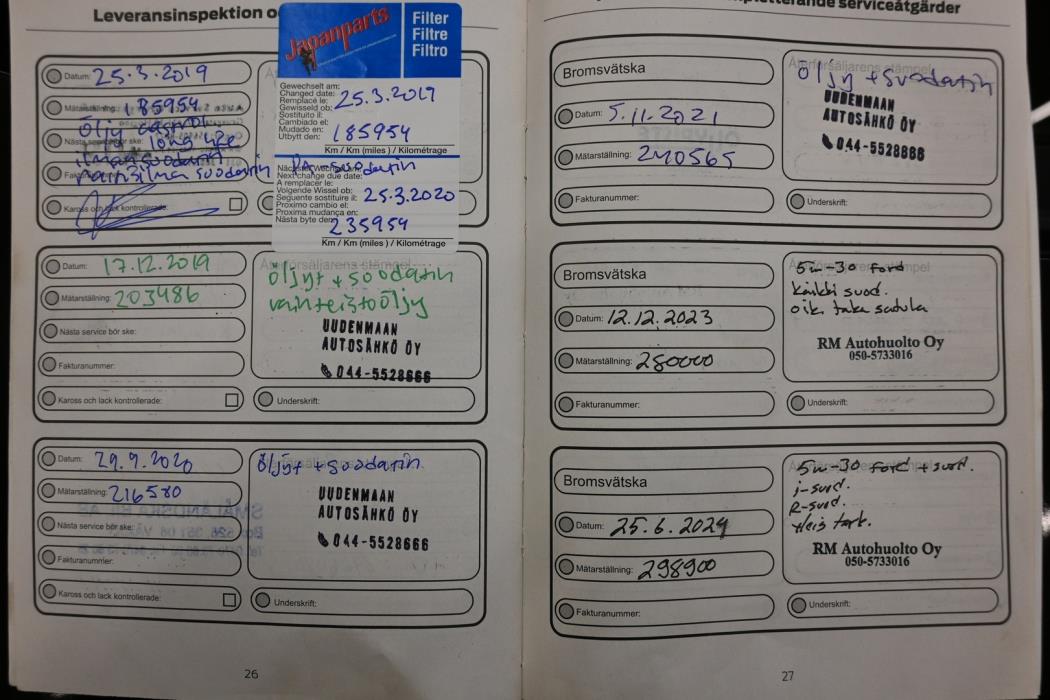 Leveransinspektion o
Japanparts
Filter
Filtre
Filtro
Datum: 25.3.2019
Mätarställning: 185954
Öljy castrol
Nästa service bör ske: long life
ilman suodatin
raitisilman suodatin
Kaross och lack kontrollerade:
Gewechselt am:
Changed date:
Remplacé le:
Gewisseld ob:
Sostituito il:
Cambiado el:
Mudado en:
Utbytt den:
25.3.2019
185954
Km / Km (miles) / Kilométrage
PA-suodatin
Next change due date:
A remplacer le:
Volgende Wissel ob:
Seguente sostituire il:
Próximo cambio el:
Proxima mudança en:
Nästa byte den:
25.3.2020
235954
Km / Km (miles) / Kilométrage
Datum: 17.12.2019
Mätarställning: 203486
Nästa service bör ske:
Fakturanummer:
Kaross och lack kontrollerade:
Återförsäljarens stämpel
Öljyt + suodatin
vaihteistoöljy
UUDENMAAN
AUTOSÄHKÖ OY
044-5528666
Underskrift:
Datum: 29.9.2020
Mätarställning: 216580
Nästa service bör ske:
Fakturanummer:
Kaross och lack kontrollerade:
Öljyt + suodatin
UUDENMAAN
AUTOSÄHKÖ OY
044-5528666
Underskrift:
26
serviceåtgärder
Bromsvätska
Datum: 5.11.2021
Mätarställning: 240565
Fakturanummer:
Återförsäljarens stämpel
Öljy + suodatin
UUDENMAAN
AUTOSÄHKÖ OY
044-5528666
Underskrift:
Bromsvätska
Datum: 12.12.2023
Mätarställning: 280000
Fakturanummer:
5w-30 ford
kaikki suod.
oik. taka satula
RM Autohuolto Oy
050-5733016
Underskrift:
Bromsvätska
Datum: 25.6.2024
Mätarställning: 298900
Fakturanummer:
5w-30 ford + suod.
i-suod.
R-suod.
yleis tark.
RM Autohuolto Oy
050-5733016
Underskrift:
27